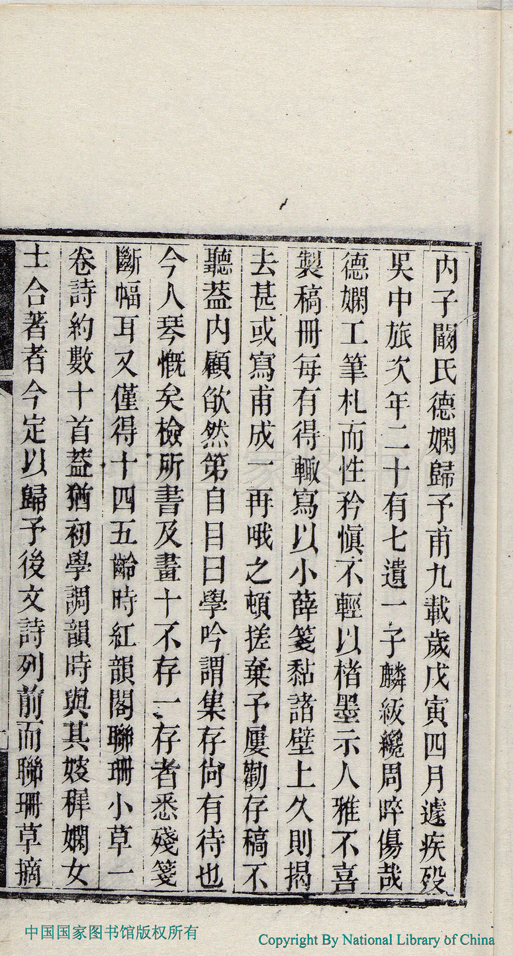 內子闞氏德嫻歸予甫九載歲戊寅四月遽疾歿
吳中旅次年二十有七遺一子麟紱纔周晬傷哉
德嫻工筆札而性矜愼不輕以楮墨示人雅不喜
製稿冊每有得輙寫以小薛箋黏諸壁上久則揭
去甚或寫甫成一再哦之頓搓棄予屢勸存稿不
聽葢內顧欿然第自目曰學吟謂集存尙有待也
今人琴慨矣檢所書及畫十不存一存者悉殘箋
斷幅耳又僅得十四五齡時紅韻閣聯珊小草一
卷詩約數十首葢猶初學調韻時與其妓穉嫻女
士合著者今定以歸予後文詩列前而聯珊草摘
中国国家图书馆版权所有
Copyright By National Library of China